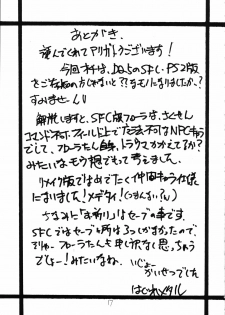 あとがき。
読んでくれてアリガトウございます!
今回本は、DQ5のSFC・PS2版
をご存知の方じゃないと??なモノになりましたか、?
すみませーん
解説しますと、SFC版フローラは、さくせん
コマンドネタ。フィールド上でたたかえ不可なNPCキャラ
でして、フローラたん自身、トラウマかかえてるか?
みたいなモウ想でもって考えました。
リメイク版ではめでたく仲間キャラ仕様に
になりました!メデタイ!(つまんない。)
ちなみに「お祈り」はセーブの事です。
SFCではセーブ箇所は3つしかなかったので、
フローラたんも申し訳なく思っちゃう
でしょー!みたいなね。
かいせつでした
はぐれメタル
17